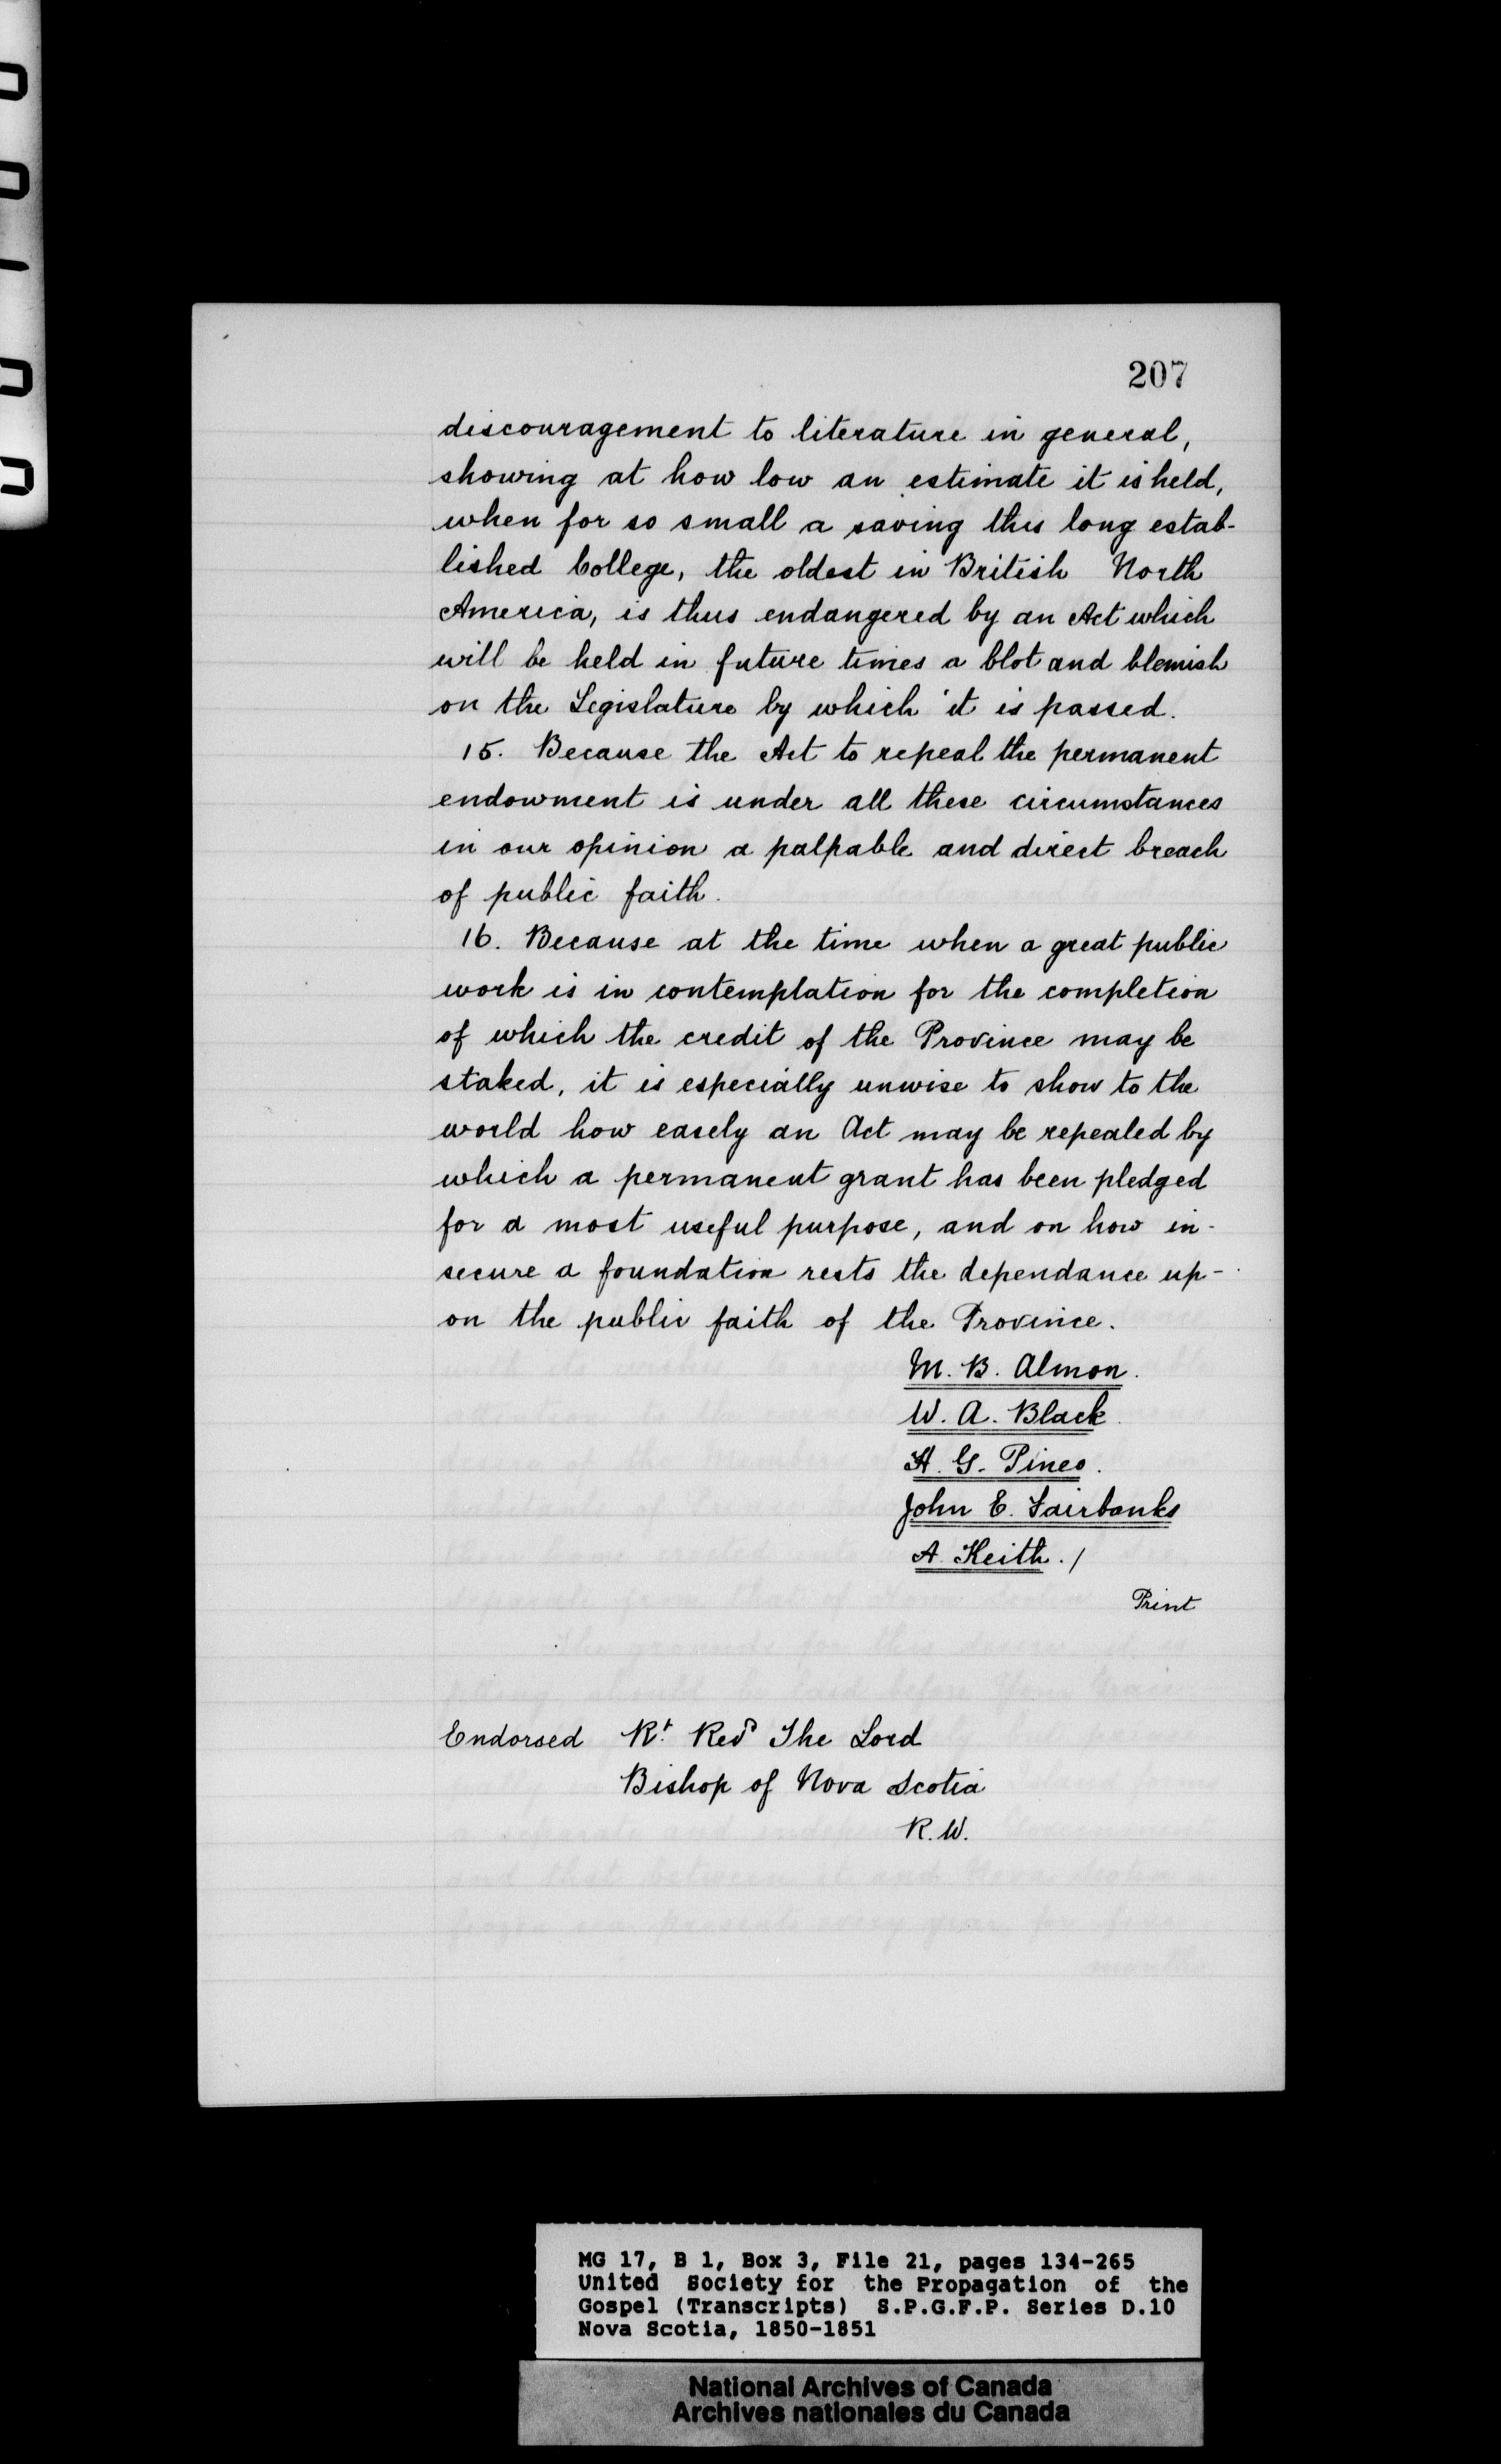 207
discouragement to literature in general,
showing at how low an estimate it is held,
when for so small a saving this long estab-
lished College, the oldest in British North
America, is thus endangered by an Act which
will be held in future times a blot and blemish
on the Legislature by which it is passed.
15. Because the Act to repeal the permanent
endowment is under all these circumstances
in our opinion a palpable and direct breach
of public faith.
16. Because at the time when a great public
work is in contemplation for the completion
of which the credit of the Province may be
staked, it is especially unwise to show to the
world how easely an Act may be repealed by
which a permanent grant has been pledged
for a most useful purpose, and on how in-
secure a foundation rests the dependance up-
on the public faith of the Province.
M. B. Almon.
W. A. Black.
H. G. Pineo.
John E. Fairbanks
A. Keith./
Print
Endorsed Rt. Revd The Lord
Bishop of Nova Scotia
R. W.
MG 17, B 1, Box 3, File 21, pages 134-265
United Society for the Propagation of the
Gospel (Transcripts) S.P.G.F.P. Series D.10
Nova Scotia, 1850-1851
National Archives of Canada
Archives nationales du Canada